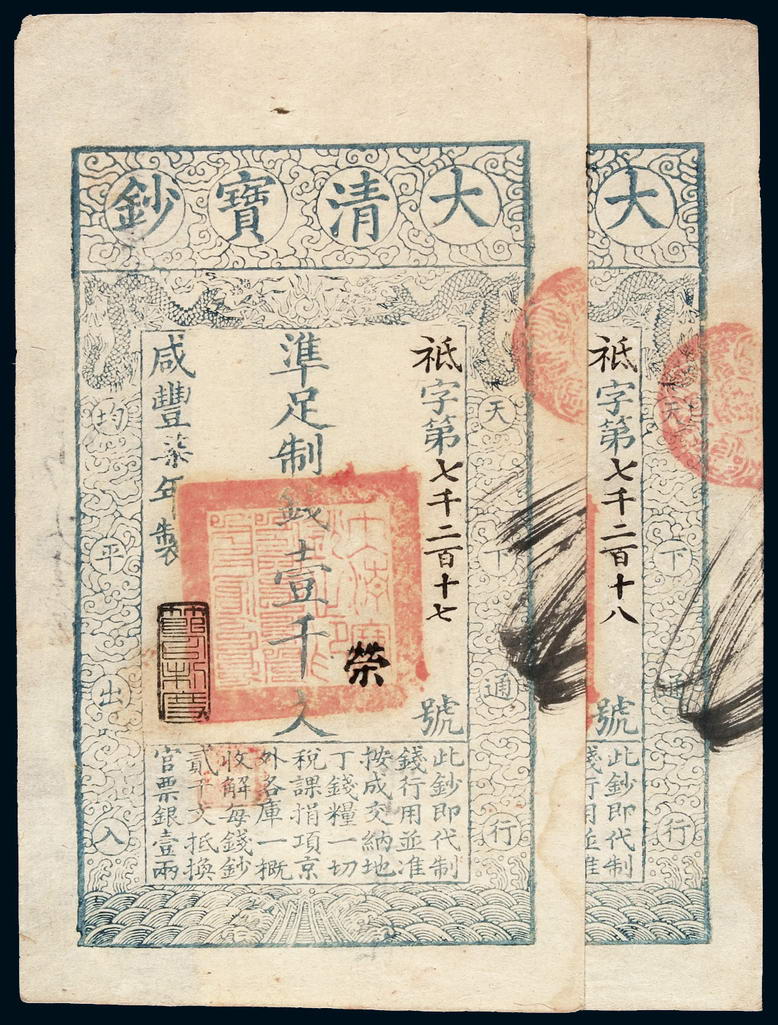 大清寶鈔
祗字第七千二百十七號
準足制錢壹千文
咸豐柒年製
天下通行
均平出入
榮
此鈔即代制
錢行用並准
按成交納地
丁錢糧一切
稅課捐項京
外各庫一概
收解每錢鈔
貳千文抵換
官票銀壹兩
大
祗字第七千二百十八號
天下通行
此鈔即代制
錢行用並准